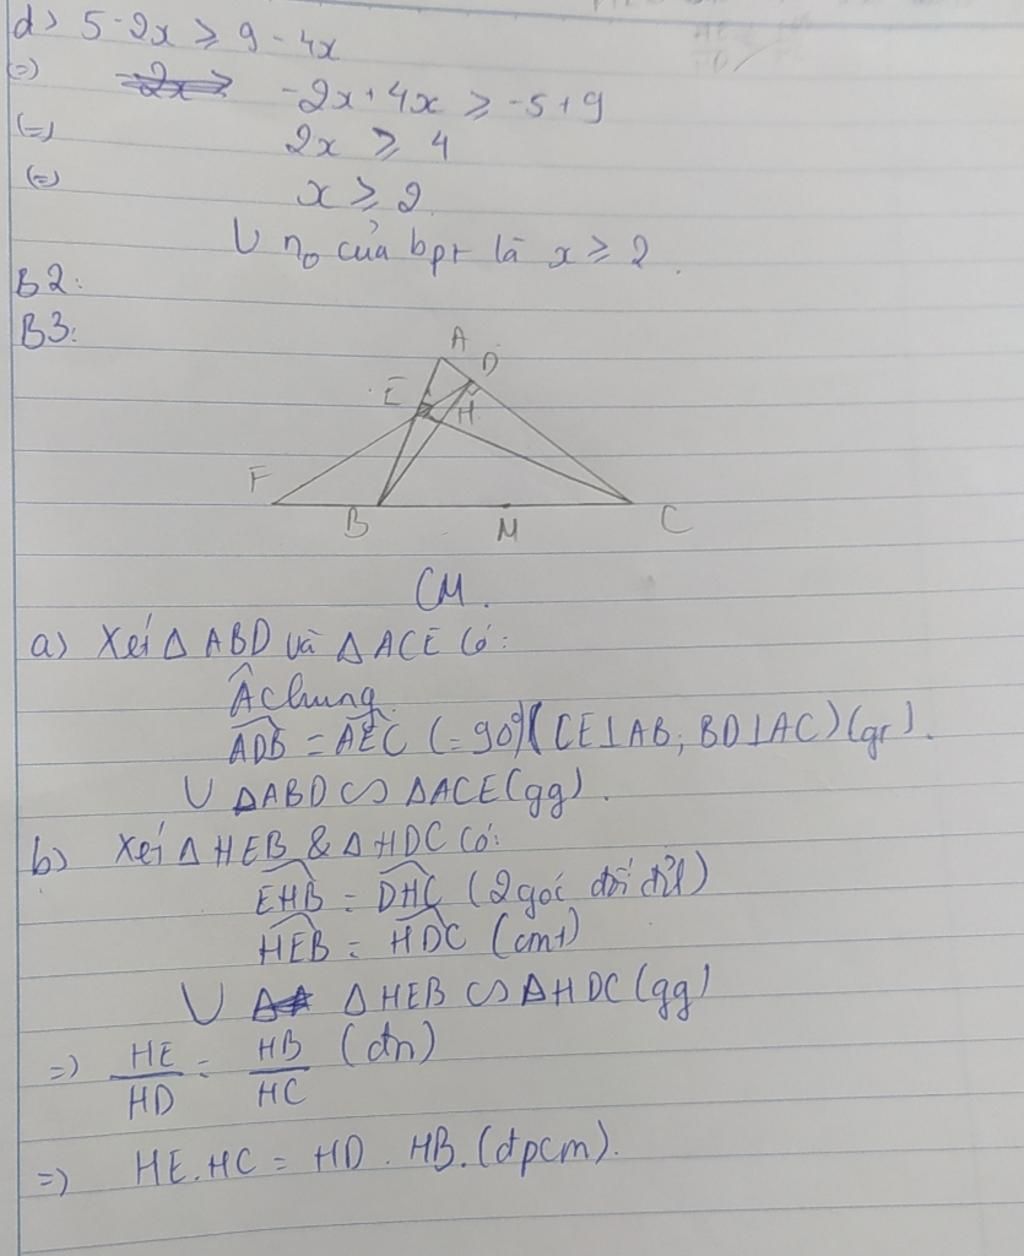 d) 5-2x ≥ 9-4x
(=) -2x+4x ≥ -5+9
(=) 2x ≥ 4
(=) x ≥ 2
V no của bpt là x ≥ 2.
B2:
B3:
A
D
E
H
F
B
M
C
CM.
a) Xét Δ ABD và Δ ACE có:
Â chung.
ADB = AEC (=90°) (CE⊥AB; BD⊥AC) (gt).
V ΔABD ∽ ΔACE (gg).
b) Xét Δ HEB & Δ HDC có:
EHB = DHC (2 góc đối đỉnh)
HEB = HDC (cmt)
V Δ HEB ∽ ΔHDC (gg)
=) HE/HD = HB/HC (đn)
=) HE.HC = HD.HB. (đpcm).